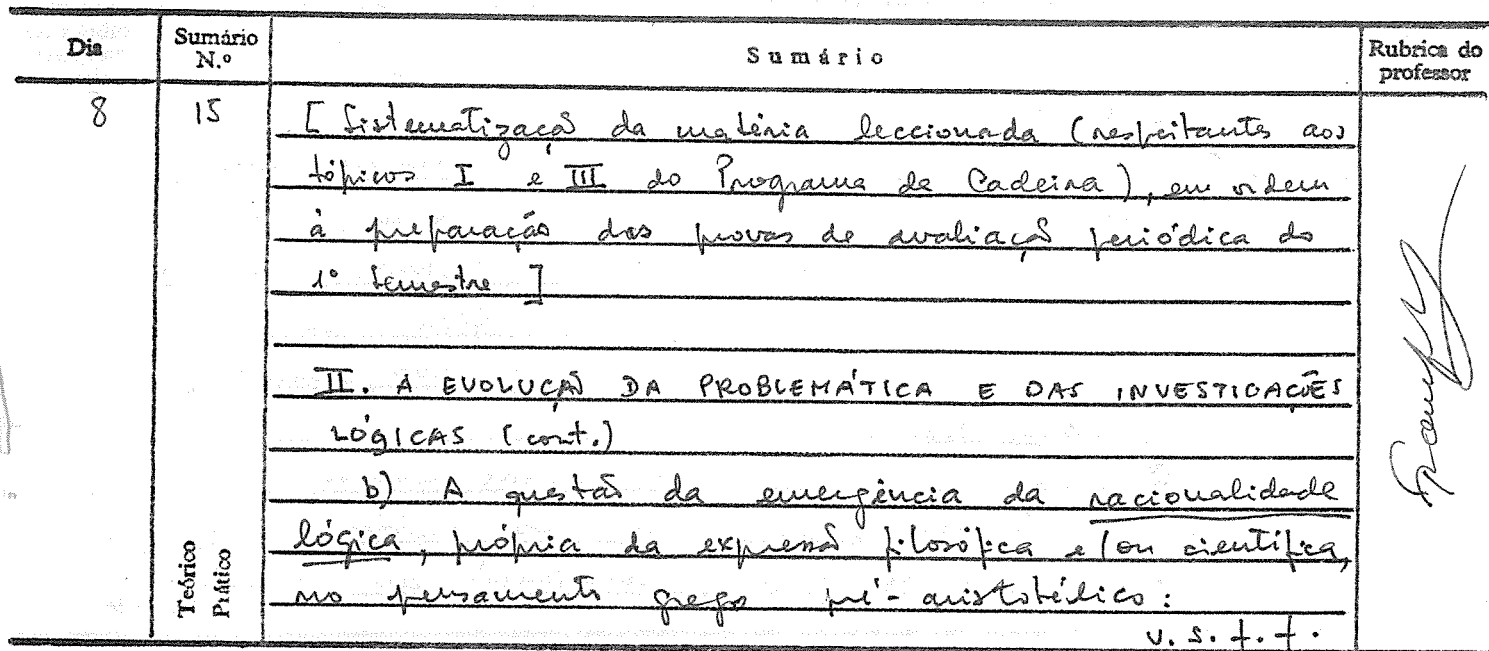 Dia
Sumário N.º
Sumário
Rubrica do professor
8
15
[ Sistematização da matéria leccionada (respeitante aos
tópicos I e III do Programa da Cadeira), em ordem
à preparação das provas de avaliação periódica do
1º Semestre ]
II. A EVOLUÇÃO DA PROBLEMÁTICA E DAS INVESTIGAÇÕES
LÓGICAS (cont.)
b) A questão da emergência da racionalidade
lógica, própria da expressão filosófica e/ou científica,
no pensamento grego pré-aristotélico:
v. s. f. f.
Teórico
Prático